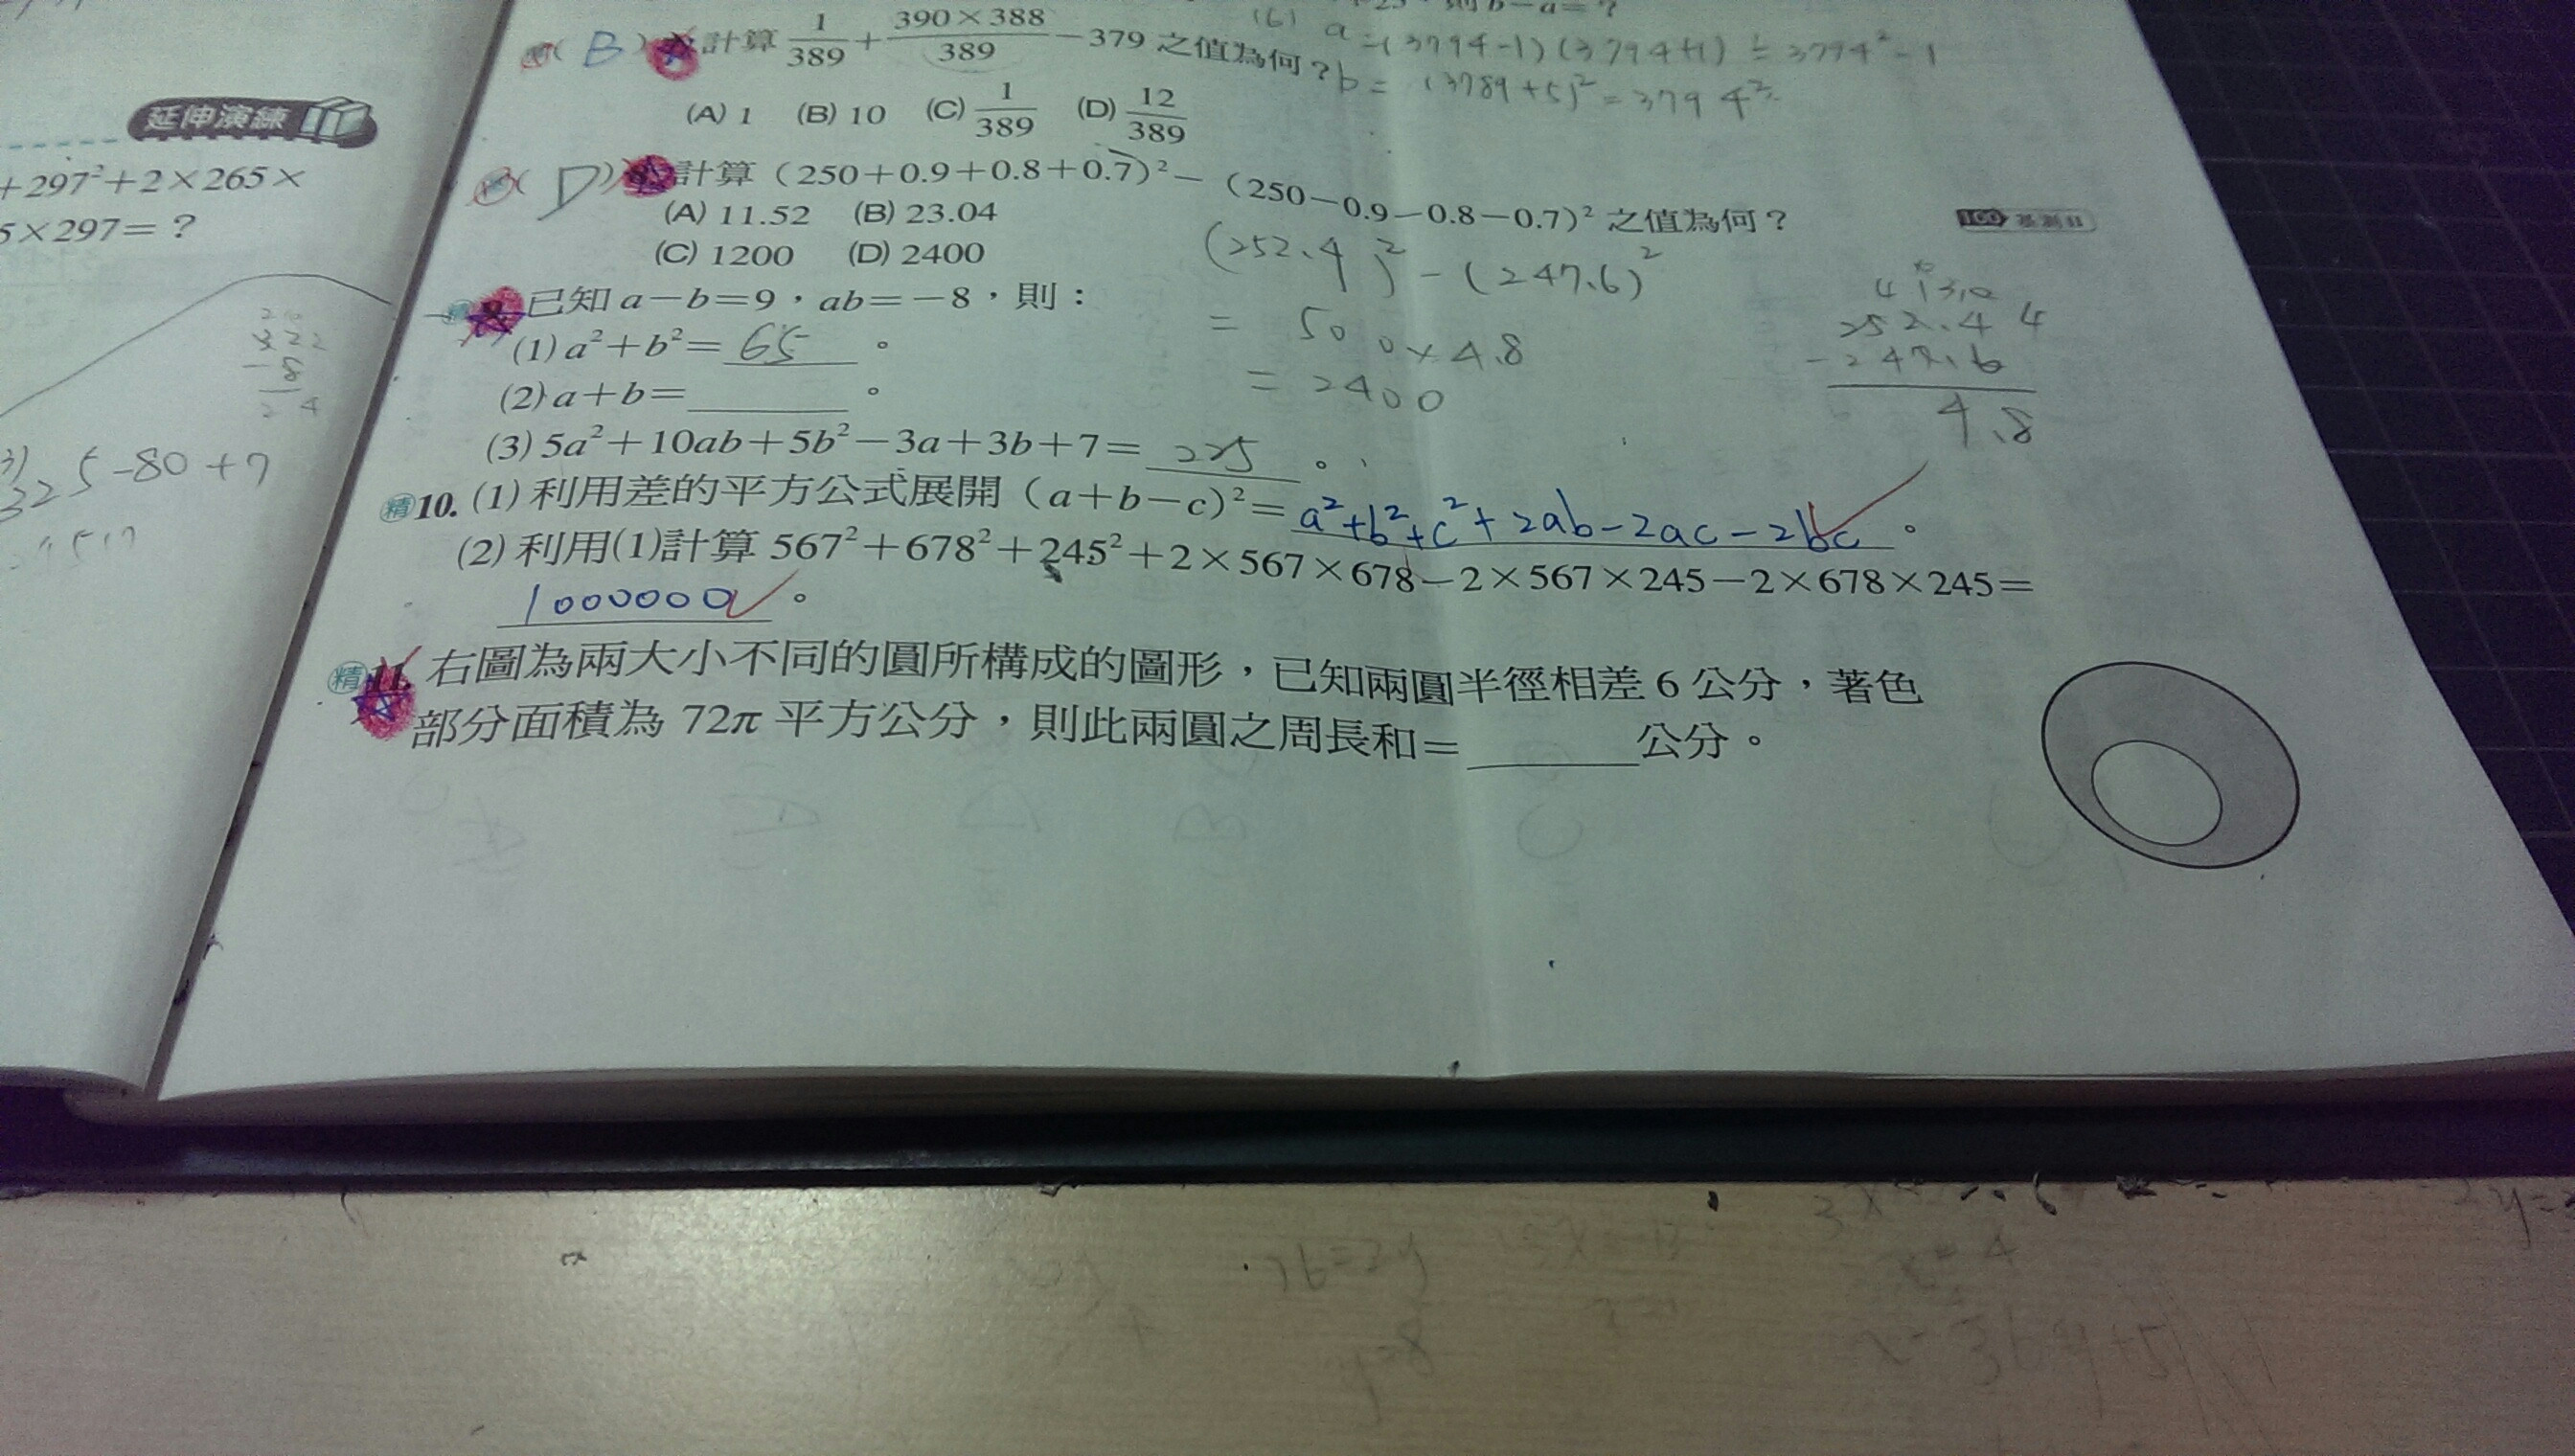 延伸演練
+297²+2×265×
5×297=？
322
3)
325-80+7
則 b-a=？
(6) a=(3794-1)(3794+1)=3794²-1
b=(3789+5)²=3794²
( B ) 計算 1/389 + 390×388/389 -379 之值為何？
(A) 1 (B) 10 (C) 1/389 (D) 12/389
( D ) 計算（250+0.9+0.8+0.7）²-（250-0.9-0.8-0.7）² 之值為何？
(A) 11.52 (B) 23.04
(C) 1200 (D) 2400
(252.4)²-(247.6)²
= 500×4.8
= 2400
252.4
-247.6
4.8
9. 已知 a-b=9，ab=-8，則：
(1) a²+b²= 65 。
(2) a+b=______。
(3) 5a²+10ab+5b²-3a+3b+7= 225 。
精 10. (1) 利用差的平方公式展開（a+b-c）²= a²+b²+c²+2ab-2ac-2bc 。
(2) 利用(1)計算 567²+678²+245²+2×567×678-2×567×245-2×678×245=
1000000 。
精 11. 右圖為兩大小不同的圓所構成的圖形，已知兩圓半徑相差 6 公分，著色
部分面積為 72π 平方公分，則此兩圓之周長和=______公分。
y=8
x=4